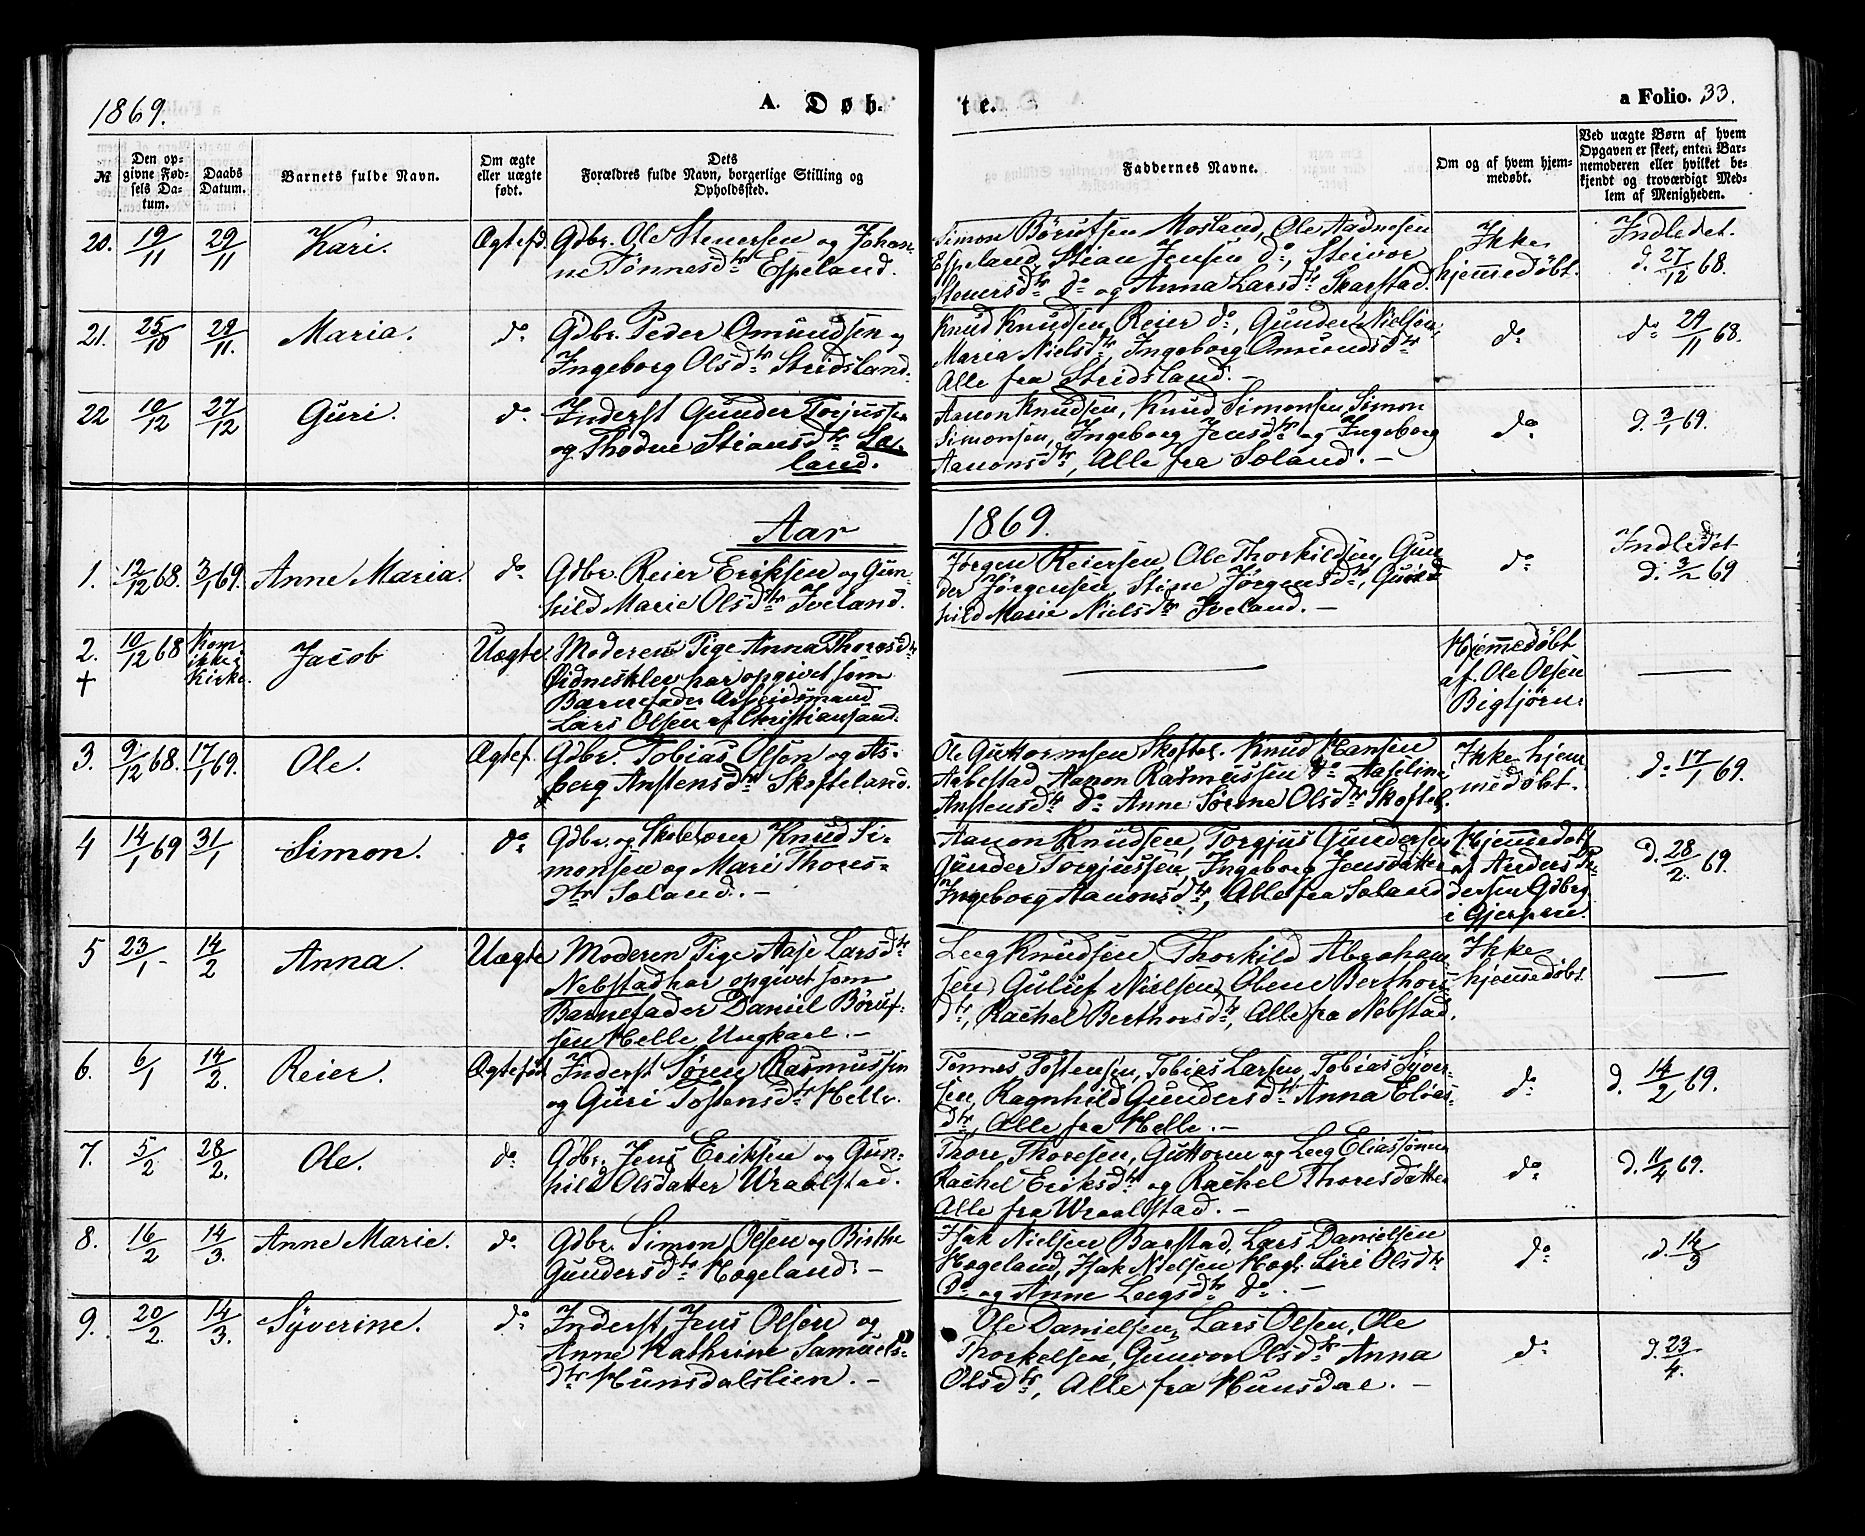 1869.
A. Døb-
te.
a Folio. 33.
№
Den op-
givne Fød-
sels Da-
tum.
Daabs
Datum.
Barnets fulde Navn.
Om ægte
eller uægte
født.
Dets
Forældres fulde Navn, borgerlige Stilling og
Opholdssted.
Faddernes Navne.
Om og af hvem hjem-
medøbt.
Ved uægte Børn af hvem
Opgaven er skeet, enten Bar-
nemoderen eller hvilket be-
kjendt og troværdigt Med-
lem af Menigheden.
20. 19/11 29/11 Kari. Ægtefd.
Gdbr. Ole Stenersen og Johan-
ne Tønnesdtr Espeland.
Simon Børufsen Mosland, Ole Aadnesen
Espeland, Stian Jensen do, Steivor
Stenersdtr do og Anna Larsdtr Skarstad.
Ikke
hjemmedøbt.
Indledet.
d. 27/12 68.
21. 25/10 29/11. Maria. do
Gdbr. Peder Omundsen og
Ingeborg Olsdtr Stridsland.
Knud Knudsen, Reier do, Gunder Nielsen,
Maria Nielsdtr, Ingeborg Omundsdtr
Alle fra Stridsland. -
do
do 29/11 68.
22 10/12 27/12 Guri. do
Inderst Gunder Torjussen
og Thodne Stiansdtr Sæ-
land.
Aanon Knudsen, Knud Simonsen, Simon
Simonsen, Ingeborg Jensdtr og Ingeborg
Aanonsdtr, Alle fra Sæland. -
do
d. 3/1 69.
Aar 1869.
1. 12/12 68. 3/1 69. Anne Maria. do
Gdbr. Reier Eriksen og Gun-
hild Marie Olsdtr Iveland.
Jørgen Reiersen, Ole Thorkildsen, Gun
der Jørgensen, Stine Jørgensdtr, Gun
hild Marie Nielsdtr Iveland. -
do
Indledet
d. 3/2 69
2. + 10/12 68 Kom
ikke i
Kirke. Jacob Uægte.
Moderen Pige Anna Thoresdtr
har opgivet som
Barnefader Arbeidsmand
Lars Olsen af Christiansand.
Hjemmedøbt
af Ole Olsen
Bigtjørn.
3. 9/12 68. 17/1 69. Ole. Ægtef.
Gdbr. Tobias Olsen og As-
berg Anstensdtr Skofteland.
Ole Guttormsen Skoftel. Knud Hansen
Aabestad, Aanon Rasmussen do Aaseline
Anstensdtr do Anne Sørine Olsdtr Skoftel.
Ikke hjem
medøbt.
do 17/1 69.
4 14/1 69 31/1 Simon. do
Gdbr. og Skolelærer Knud Si-
monsen og Mari Thores-
dtr Sæland. -
Aanon Knudsen, Torgjus Gundersen
Gunder Torgjussen, Ingeborg Jensdatter
Ingeborg Aanonsdtr, Alle fra Sæland
Hjemmedøbt
af Anders Pe-
dersen Gdbrg.
i Gjerpen.
d. 28/2. 69.
5 23/1 - 14/2 Anna. Uægte
Moderen Pige Aase Larsdtr
Nebstad har opgivet som
Barnefader Daniel Børuf-
sen Helle, Ungkarl. -
Leeg Knudsen, Thorkild Abraham
sen, Guluf Nielsen, Olene Berthors-
dtr, Rachel Berthorsdtr, Alle fra Nebstad.
Ikke
hjemmedøbt
6. 6/1 14/2. Reier. Ægtefød
Inderst Søren Rasmussen
og Guri Tostensdtr Helle.
Tønnes Tostensen, Tobias Larsen, Tobias Syver-
sen, Ragnhild Gundersdtr Anna Elias-
dtr, Alle fra Helle. -
do
d. 14/2 69.
7. 5/2 28/2. Ole. do
Gdbr. Jens Eriksen og Gun-
hild Olsdatter Wraalstad.
Thore Thoresen, Guttorm og Leeg Eliassønner
Rachel Eriksdtr og Rachel Thoresdatter
Alle fra Wraalstad. -
do
d. 11/4 69.
8. 16/2 14/3. Anne Marie. do
Gdbr. Simon Olsen og Birthe
Gundersdtr Hægeland. -
Isak Nielsen Barstad, Lars Danielsen
Hægeland, Isak Nielsen Hægl. Siri Olsdtr
Do og Anne Leegsdtr do. -
do
d. 14/3
9. 20/2. 14/3. Syverine. do
Inderst Jens Olsen og
Anne Kathrine Samuels-
dtr Hunsdalslien. -
Ole Danielsen, Lars Olsen, Ole
Thorkelsen, Gunvor Olsdtr Anna
Olsdtr, Alle fra Hunsdal. -
do
d. 23/4.